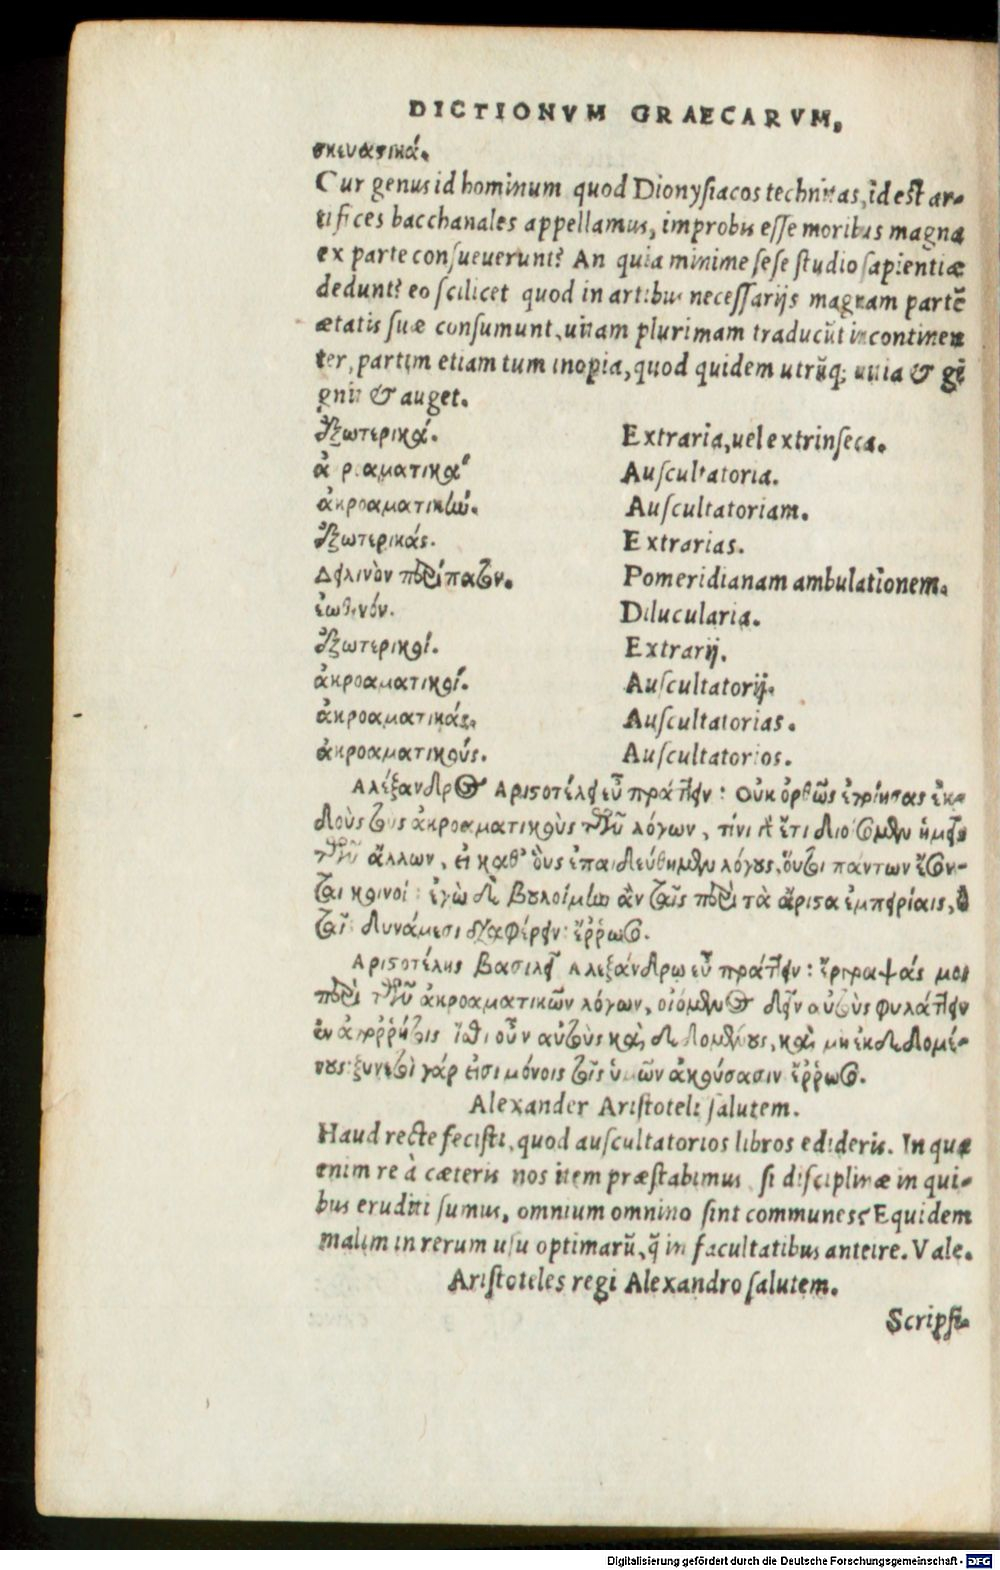 DICTIONVM GRAECARVM,
σκευαστικά.
Cur genus id hominum quod Dionysiacos technitas, id est ar-
tifices bacchanales appellamus, improbis esse moribus magna
ex parte consueuerunt? An quia minime sese studio sapientiæ
dedunt? eo scilicet quod in artibus necessarijs magnam partē
ætatis suæ consumunt, uitam plurimam traducūt incontinen
ter, partim etiam tum inopia, quod quidem utrūq; uitia & gi
gnit & auget.
ἐξωτερικά. Extraria, uel extrinseca.
ἀκροαματικά Auscultatoria.
ἀκροαματικὼ. Auscultatoriam.
ἐξωτερικάς. Extrarias.
Δειλινὸν περίπατον. Pomeridianam ambulationem.
ἑωθινόν. Dilucularia.
ἐξωτερικοί. Extrarij.
ἀκροαματικοί. Auscultatorij.
ἀκροαματικάς. Auscultatorias.
ἀκροαματικούς. Auscultatorios.
Αλέξανδρος Αριστοτέλει εὖ πράττειν: Οὐκ ὀρθῶς ἐποίησας ἐκ-
δοὺς τοὺς ἀκροαματικοὺς τῶν λόγων, τίνι δὲ ἔτι διοίσομεν ἡμεῖς
τῶν ἄλλων, εἰ καθ' οὓς ἐπαιδεύθημεν λόγους, οὗτοι πάντων ἔσον-
ται κοινοί: ἐγὼ δὲ βουλοίμω ἂν ταῖς περὶ τὰ ἄριστα ἐμπειρίαις, ἢ
ταῖς δυνάμεσι διαφέρειν: ἔῤῥωσο.
Αριστοτέλης βασιλεῖ Αλεξάνδρω εὖ πράττειν: ἔγραψάς μοι
περὶ τῶν ἀκροαματικῶν λόγων, οἰόμενος δεῖν αὐτοὺς φυλάττειν
ἐν ἀποῤῥήτοις ἴσθι οὖν αὐτοὺς καὶ ἐκδεδομένους, καὶ μὴ ἐκδεδομέ-
νους: ξυνετοὶ γάρ εἰσι μόνοις τοῖς ἡμῶν ἀκούσασιν ἔῤῥωσο.
Alexander Aristoteli salutem.
Haud recte fecisti, quod auscultatorios libros edideris. In qua
enim re à cæteris nos item præstabimus si disciplinæ in qui-
bus eruditi sumus, omnium omnino sint communes? Equidem
malim in rerum usu optimarū, q̃ in facultatibus anteire. Vale.
Aristoteles regi Alexandro salutem.
Scripsi-
Digitalisierung gefördert durch die Deutsche Forschungsgemeinschaft - DFG